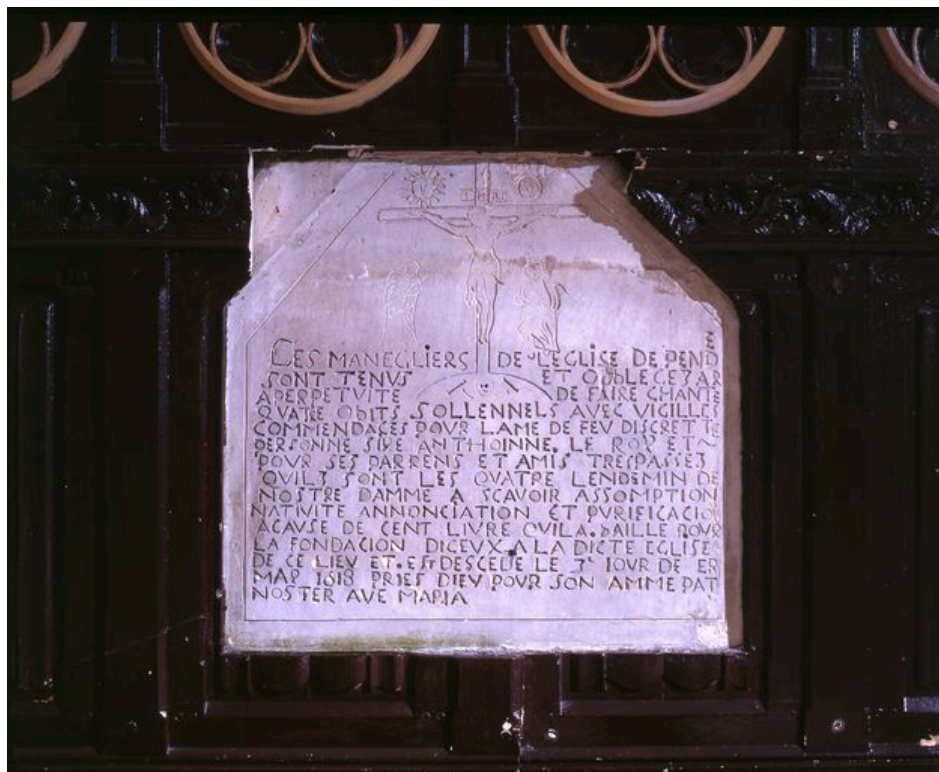 INRI
LES MANEGLIERS DE LEGLICE DE PEND
SONT TENUS ET OBBLEGEZ AR
APERPETUITE DE FAIRE CHANTE
QUATRE OBITS SOLLENNELS AVEC VIGILLES
COMMENDACES POUR LAME DE FEU DISCRETTE
PERSONNE SIRE ANTHOINNE LE ROY ET
POUR SES PARRENS ET AMIS TRESPASSEZ
QUILZ SONT LES QUATRE LENDEMIN DE
NOSTRE DAMME A SCAVOIR ASSOMPTION
NATIVITE ANNONCIATION ET PURIFICACIO
ACAUSE DE CENT LIVRE QUILA BAILLE POUR
LA FONDACION DICEUX A LA DICTE EGLISE
DE CE LIEU ET EST DESCEDE LE 3E IOUR DE
MAR 1618 PRIES DIEU POUR SON AMME PAT
NOSTER AVE MARIA